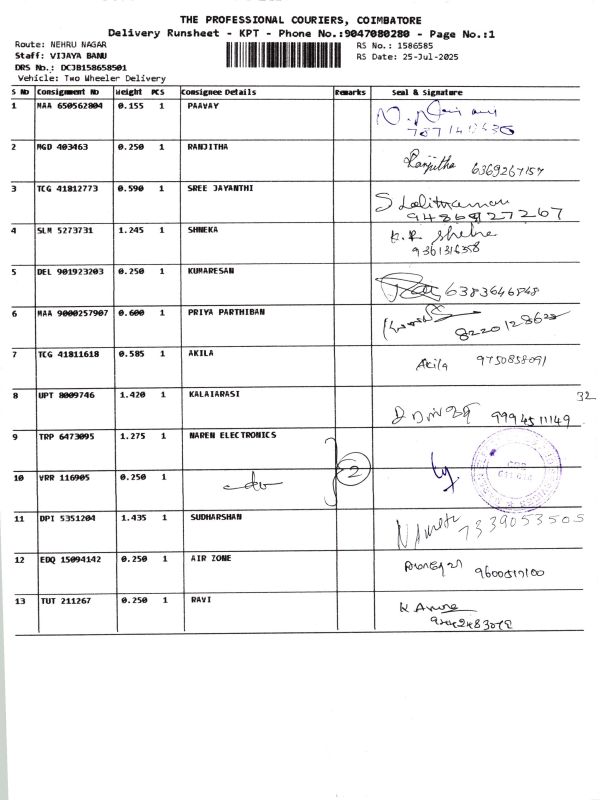 THE PROFESSIONAL COURIERS, COIMBATORE
Delivery Runsheet - KPT - Phone No.:9047080280 - Page No.:1
Route: NEHRU NAGAR
RS No.: 1586585
Staff: VIJAYA BANU
RS Date: 25-Jul-2025
DRS No.: DCJB158658501
Vehicle: Two Wheeler Delivery
S No Consignment No Weight PCS Consignee Details Remarks Seal & Signature
1 MAA 650562804 0.155 1 PAAVAY
2 MGD 403463 0.250 1 RANJITHA Ranjitha 6369267157
3 TCG 41812773 0.590 1 SREE JAYANTHI
9486927267
4 SLM 5273731 1.245 1 SHNEKA
5 DEL 901923203 0.250 1 KUMARESAN 6383646848
6 MAA 9000257907 0.600 1 PRIYA PARTHIBAN
7 TCG 41811618 0.585 1 AKILA Akila 9750858091
8 UPT 8009746 1.420 1 KALAIARASI 32
9994511149
9 TRP 6473095 1.275 1 NAREN ELECTRONICS
10 VRR 116905 0.250 1 2
11 DPI 5351204 1.435 1 SUDHARSHAN 7339053505
12 EDQ 15094142 0.250 1 AIR ZONE
13 TUT 211267 0.250 1 RAVI